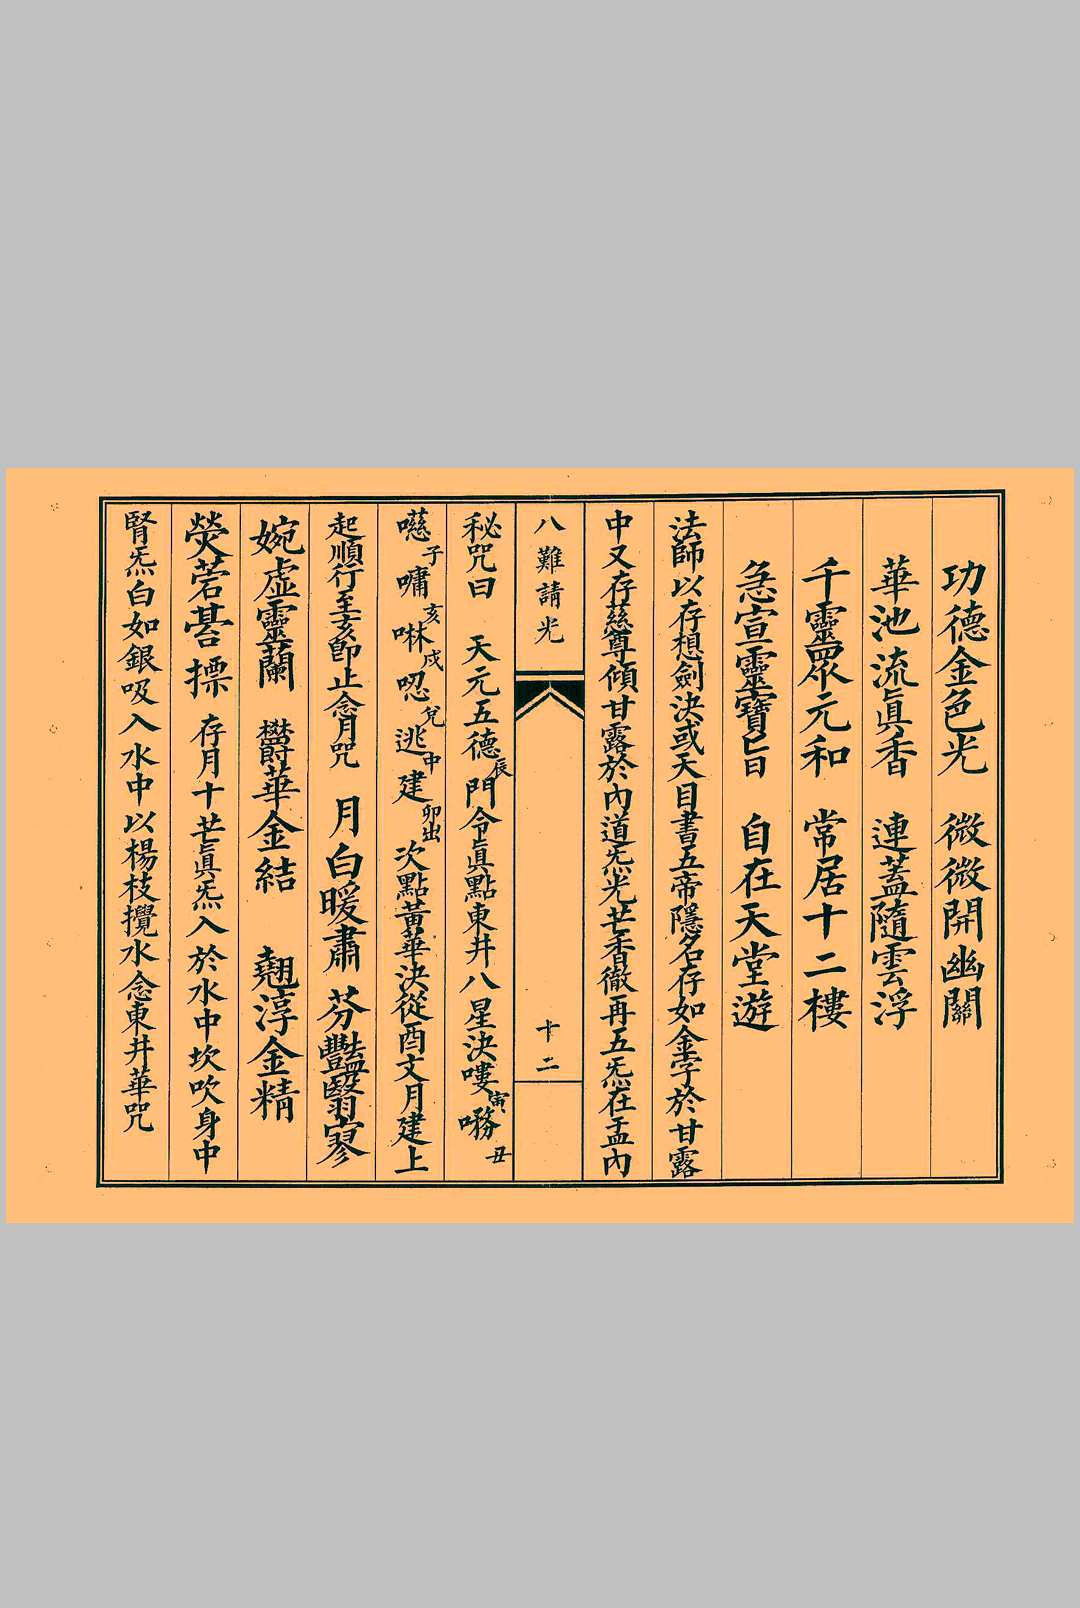 功德金色光　微微開幽關
華池流眞香　連蓋隨雲浮
千靈眾元和　常居十二樓
急宣靈寶旨　自在天堂遊
法師以存想劍決或天目書五帝隱名存如金字於甘露
中又存慈尊傾甘露於內道炁光芒香徹再五炁在盂內
八難請光　十二
秘咒曰　天元五德辰門令眞點東井八星決嘍寅㗙丑
嘅子嘃亥啉戌唿兌逃申建卯出次點黃華決從酉文月建上
起順行至亥即止念月咒　月白暖肅　芬豔翳寥
婉虛靈蘭　欝華金結　翹淳金精
熒菪䓫摽　存月十芒眞炁入於水中坎吹身中
腎炁白如銀吸入水中以楊枝攪水念東井華咒